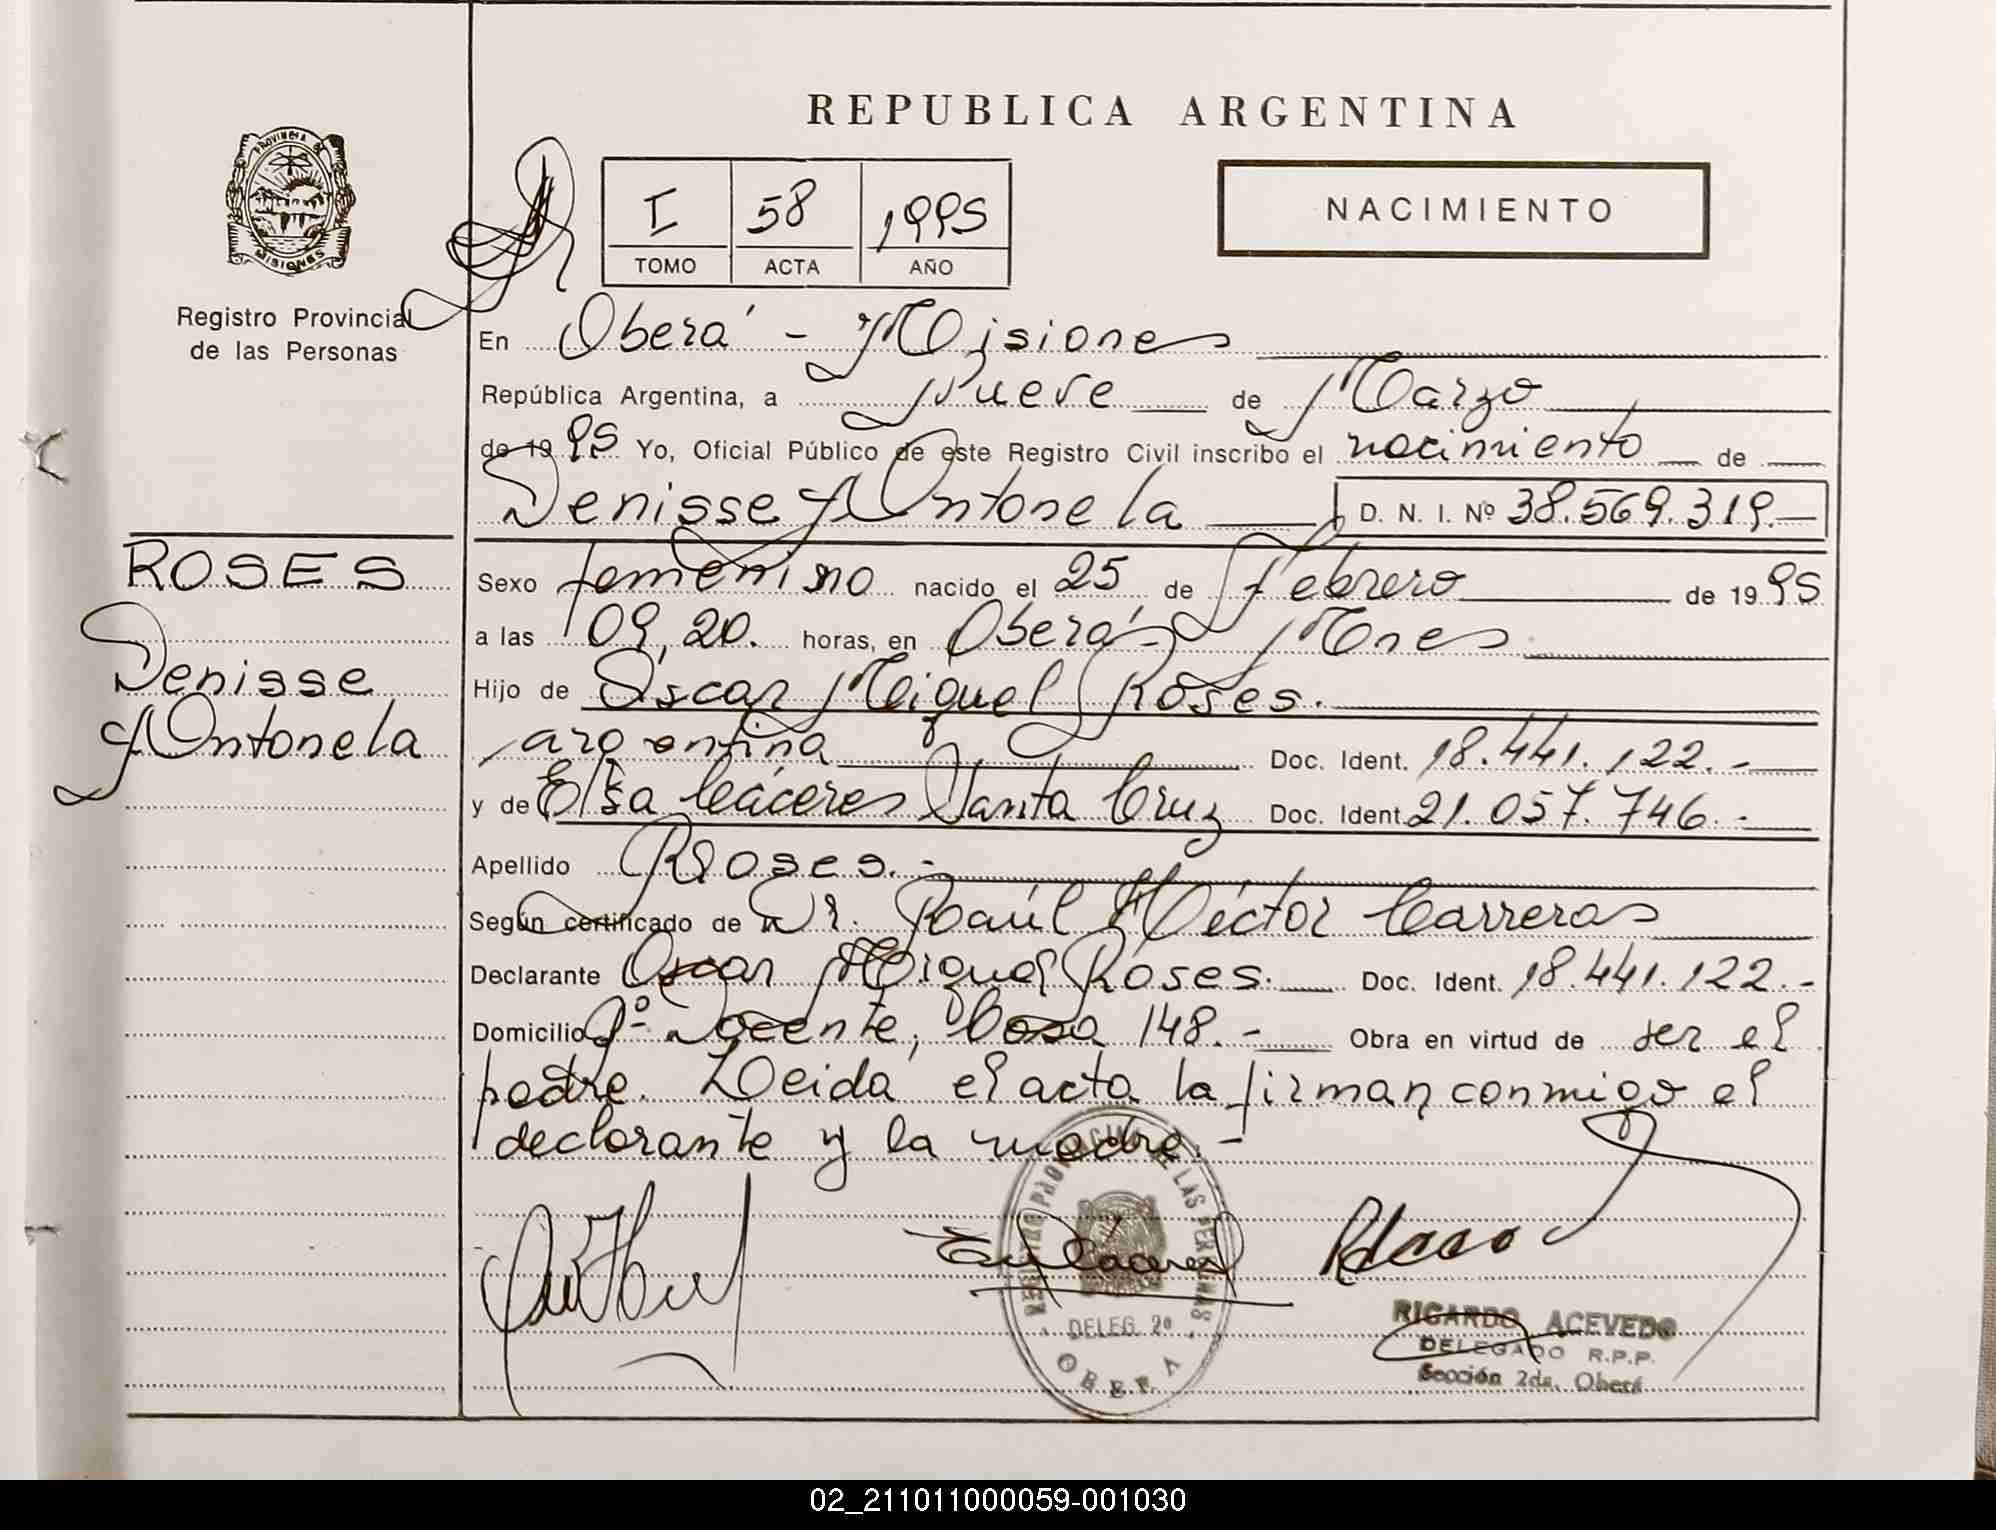 REPUBLICA ARGENTINA
PROVINCIA DE
MISIONES
Registro Provincial
de las Personas
I 58 1995
TOMO ACTA AÑO
NACIMIENTO
En Oberá - Misiones
República Argentina, a Nueve de Marzo
de 1995 Yo, Oficial Público de este Registro Civil inscribo el nacimiento de
Denisse Antonela D. N. I. Nº 38.569.319.-
ROSES
Denisse
Antonela
Sexo femenino nacido el 25 de Febrero de 1995
a las 09,20. horas, en Oberá - Mnes
Hijo de Oscar Miguel Roses.
argentina Doc. Ident. 18.441.122.-
y de Elsa Cáceres Santa Cruz Doc. Ident. 21.057.746.-
Apellido Roses.-
Según certificado de Dr. Raúl Héctor Carreras
Declarante Oscar Miguel Roses. Doc. Ident. 18.441.122.-
Domicilio Bº Docente, Casa 148.- Obra en virtud de ser el
padre. Leida el acta la firman conmigo el
declarante y la madre.-
REGISTRO PROVINCIAL DE LAS PERSONAS
DELEG. 2ª
OBERA
RICARDO ACEVEDO
DELEGADO R.P.P.
Sección 2da. Oberá
02_211011000059-001030